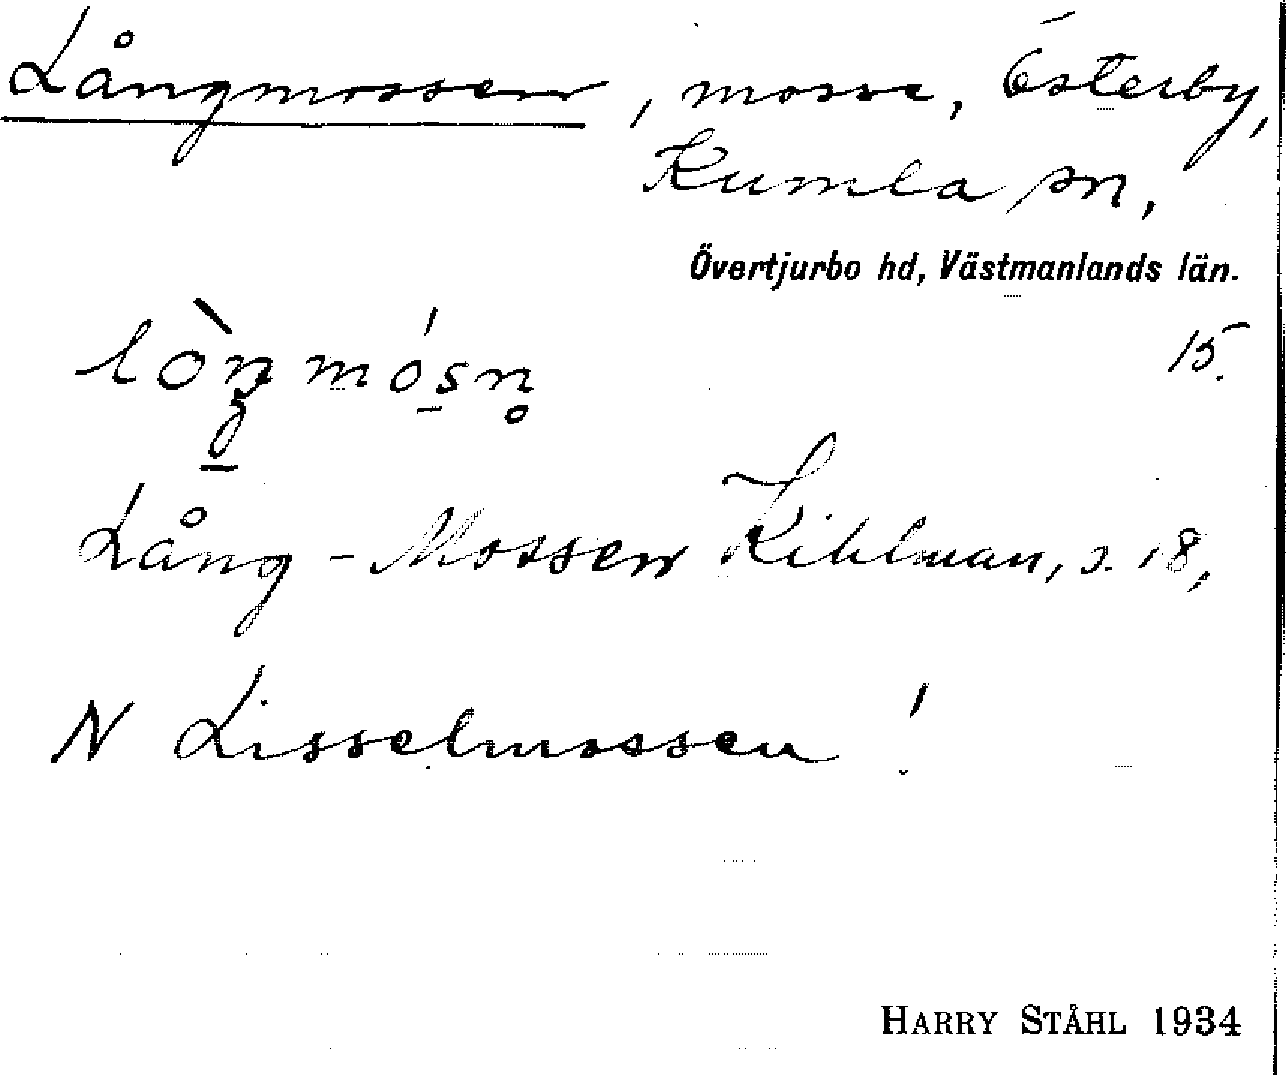 Långmossen, mosse, Österby,
Kumla sn,
Övertjurbo hd, Västmanlands län.
15.
Lång-Mossen Kihlman, s. 18,
N Lisselmossen!
HARRY STÅHL 1934